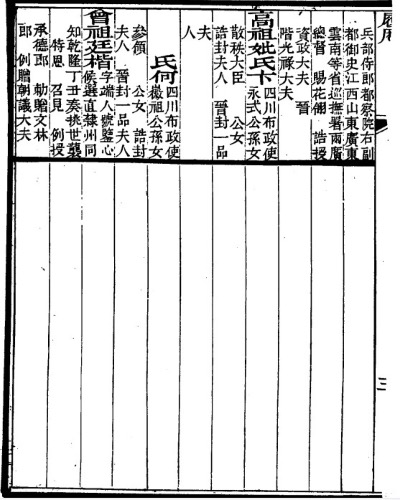 兵部侍郎都察院右副
都御史江西山東廣東
雲南等省巡撫署兩廣
總督 賜花翎 誥授
資政大夫 晉
階光祿大夫
高祖妣氏卞
四川布政使
永式公孫女
散秩大臣 公女
誥封夫人 晉封一品
夫
人
氏何
四川布政使
公孫女
參領 公女 誥封
夫人 晉封一品夫人
曾祖廷楷
字端人號鑒心
候選直隸州同
知乾隆丁丑 世襲
特恩 召見 例授
承德郎 勅贈文林
郎 例贈朝議大夫
三